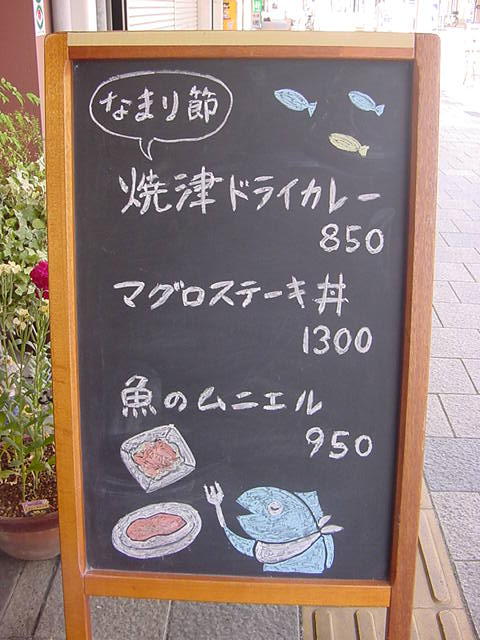 なまり節
焼津ドライカレー
850
マグロステーキ丼
1300
魚のムニエル
950